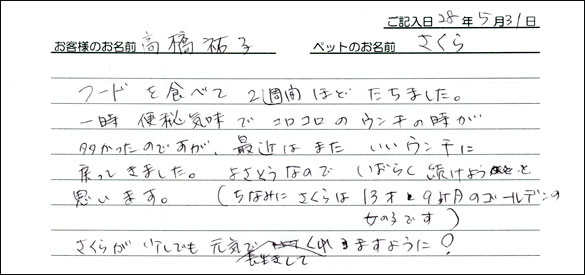 ご記入日 28年 5月31日
お客様のお名前 高橋祐子 ペットのお名前 さくら
フードを食べて 2週間ほど たちました。
一時 便秘気味で コロコロの ウンチの時が
多かったのですが、最近は また いいウンチに
戻ってきました。 よさそうなので しばらく 続けようと
思います。 (ちなみに さくらは 13才と9ヶ月のゴールデンの
女の子です)
さくらが 少しでも 元気で 長生きして くれますように♡